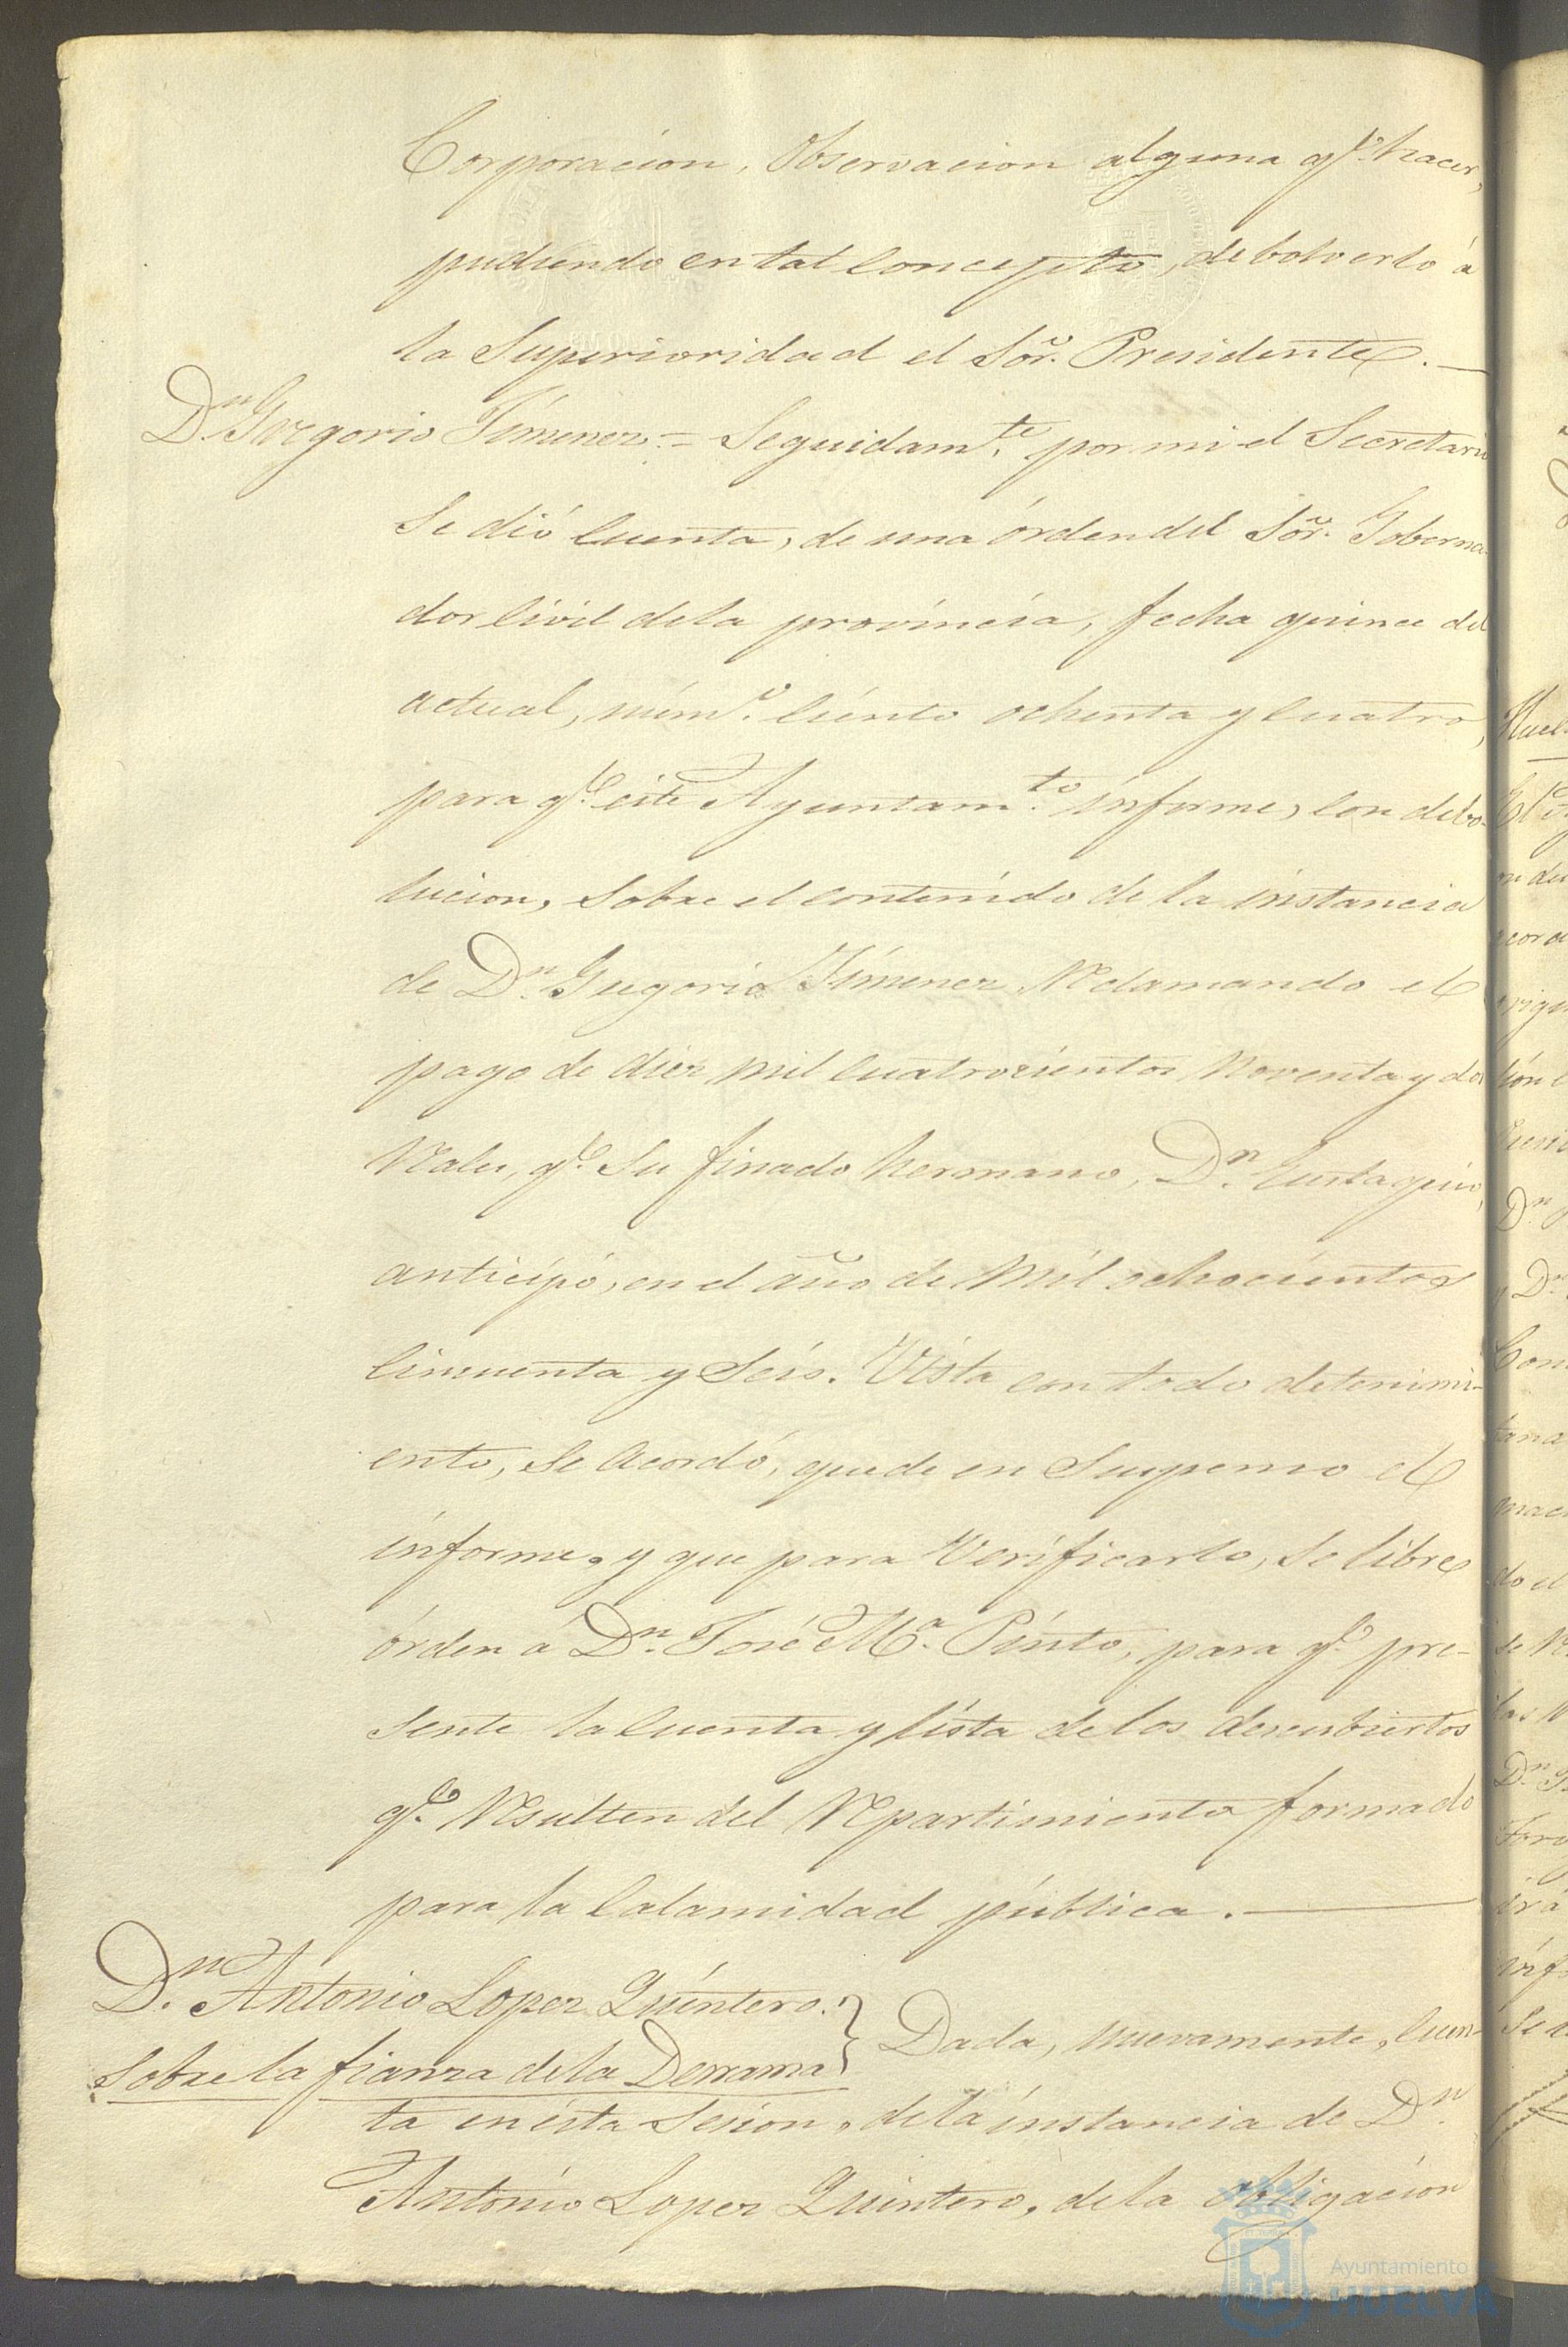 Corporacion, Observacion alguna q.e hacer,
pudiendo en tal concepto, debolverlo á
la Superioridad el Sõr. Presidente. —
D.n Gregorio Jimenez. = Seguidam.te por mi el Secretario
se dió cuenta, de una órden del Sõr. Goberna-
dor Civil de la provincia, fecha quince del
actual, núm.o ciento ochenta y cuatro,
para q.e este Ayuntam.to informe, con debo-
lucion, sobre el contenido de la instancia
de D.n Gregorio Jimenez Reclamando el
pago de diez mil cuatrocientos noventa y dos
Reales, q.e su finado hermano, D.n Eustaquio,
anticipó, en el año de mil ochocientos
cincuenta y seis. Vista con todo detenimi-
ento, se acordó, quede en suspenso el
informe, y que para Verificarlo, se libre
órden á D.n José M.a Pinto, para q.e pre-
sente la cuenta y lista de los descubiertos
q.e Resulten del Repartimiento formado
para la calamidad pública. —
D.n Antonio Lopez Quintero.
sobre la fianza de la Derrama } Dada, nuevamente, cuen-
ta en ésta sesion, de la instancia de D.n
Antonio Lopez Quintero, de la obligacion
Ayuntamiento de
HUELVA